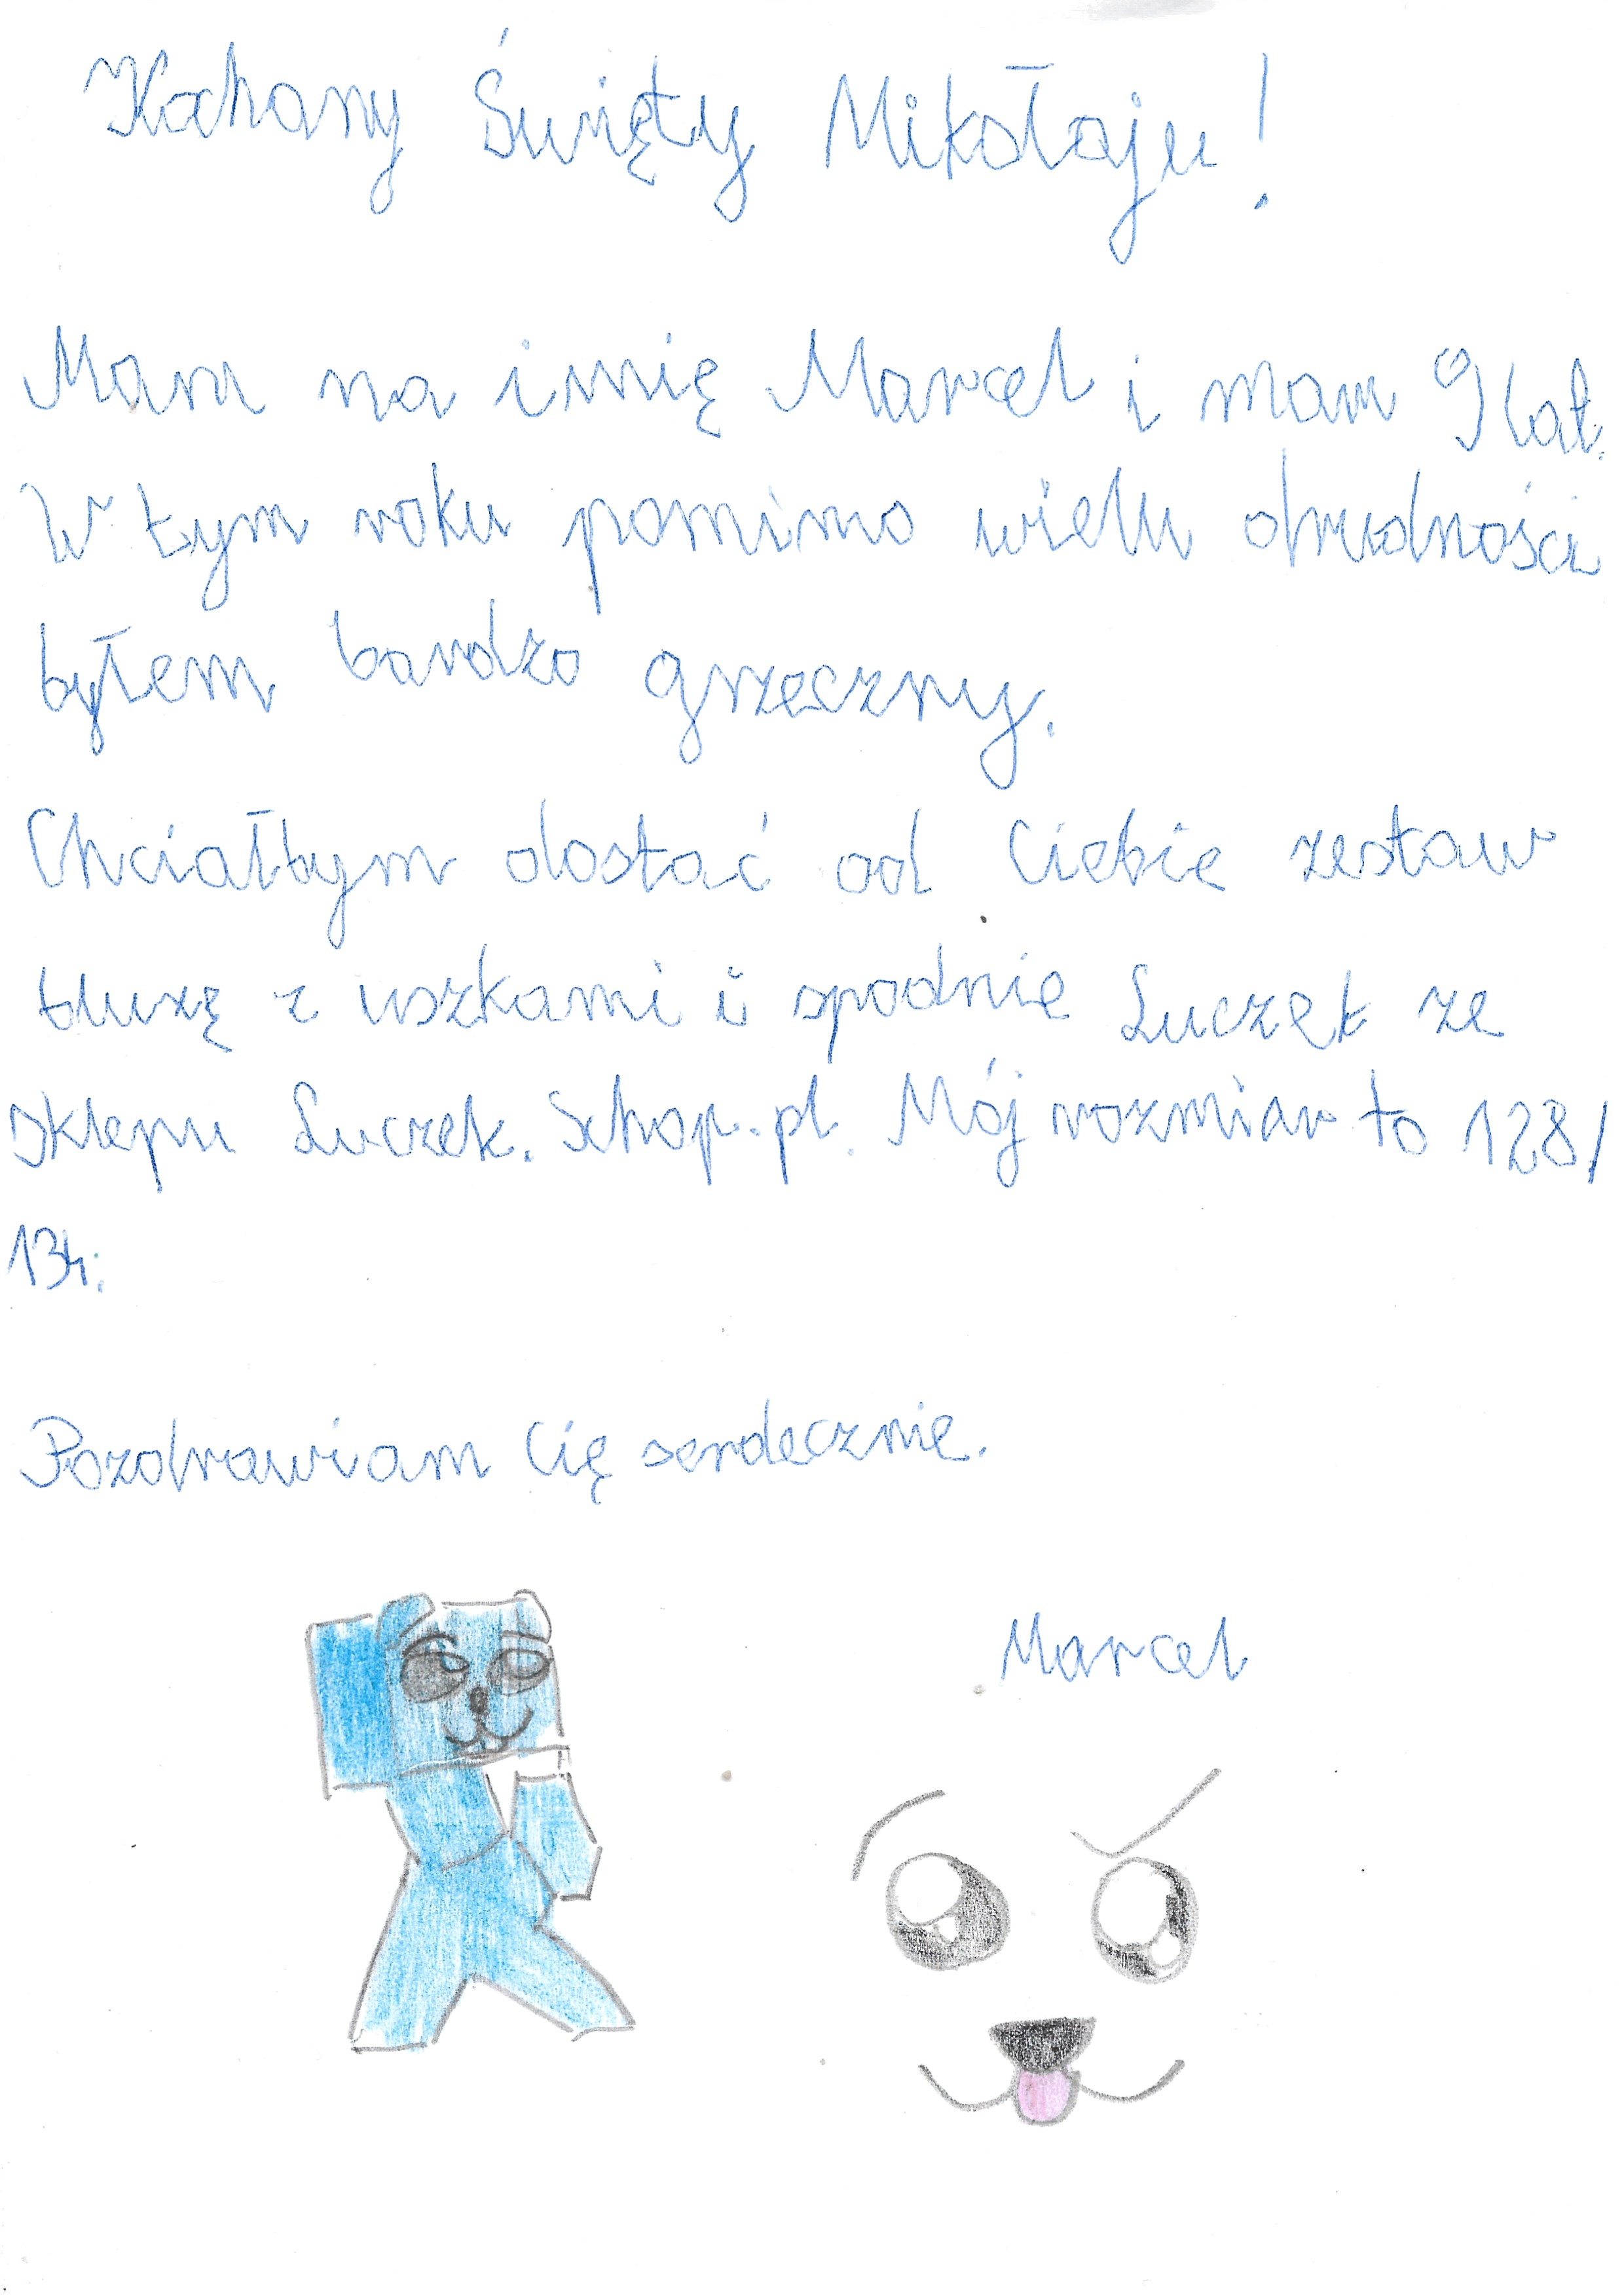 Kochany Święty Mikołaju!
Mam na imię Marcel i mam 9 lat.
W tym roku pomimo wielu
byłem bardzo grzeczny.
Chciałbym dostać od Ciebie zestaw
bluzę z uszkami i spodnie Luczek ze
sklepu Luczek. Schop. pl. Mój rozmiar to 128/
134.
Pozdrawiam Cię serdecznie.
Marcel